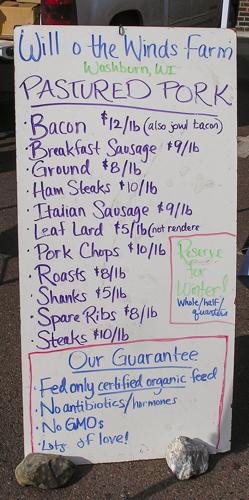 Will o the Winds Farm
Washburn, WI
PASTURED PORK
· Bacon $12/lb (also jowl bacon)
· Breakfast Sausage $9/lb
· Ground $8/lb
· Ham Steaks $10/lb
· Italian Sausage $9/lb
· Leaf Lard $5/lb (not rendere
· Pork Chops $10/lb
· Roasts $8/lb
· Shanks $5/lb
· Spare Ribs $8/lb
· Steaks $10/lb
Reserve
for
Winter!
Whole/half/
quarters
Our Guarantee
· Fed only certified organic feed
· No antibiotics/hormones
· No GMOs
· Lots of love!